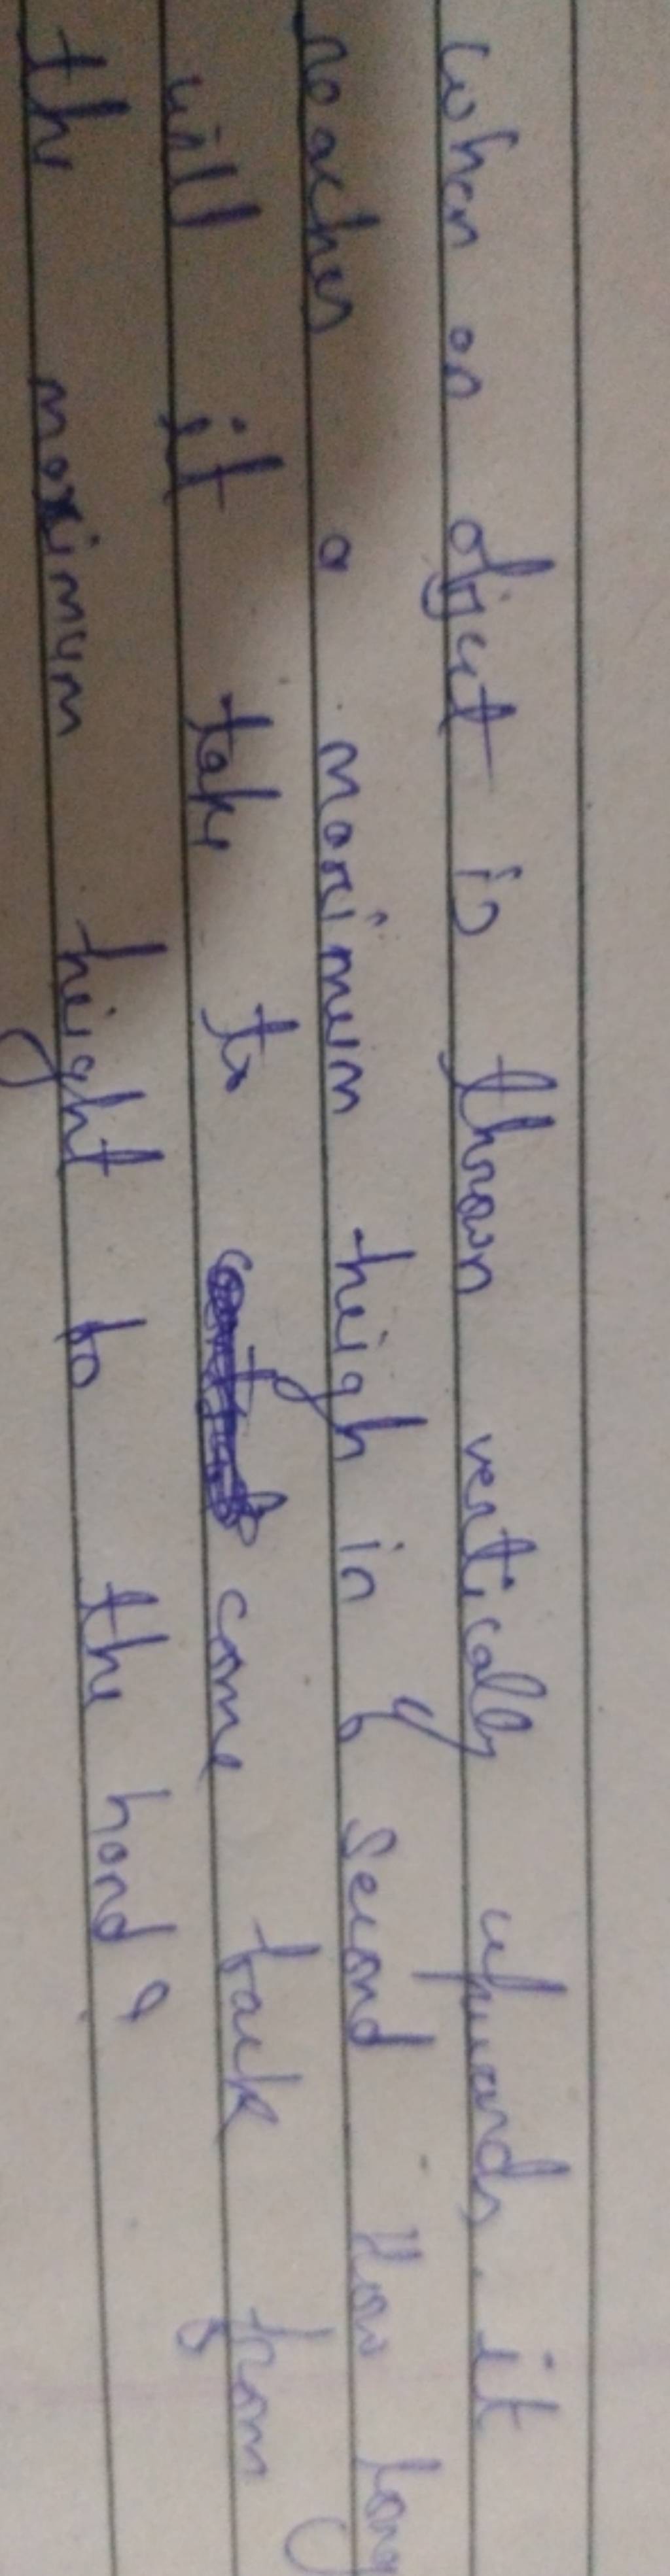 When an object is thrown vertically upwards, it
reaches a maximum heigh in second How long
will it take to come back from
the maximum height to the hand?